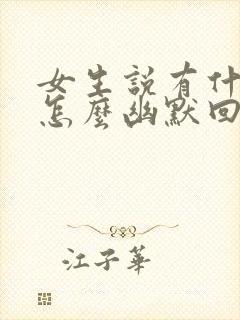 女生説有什
怎麼幽默回
江子華